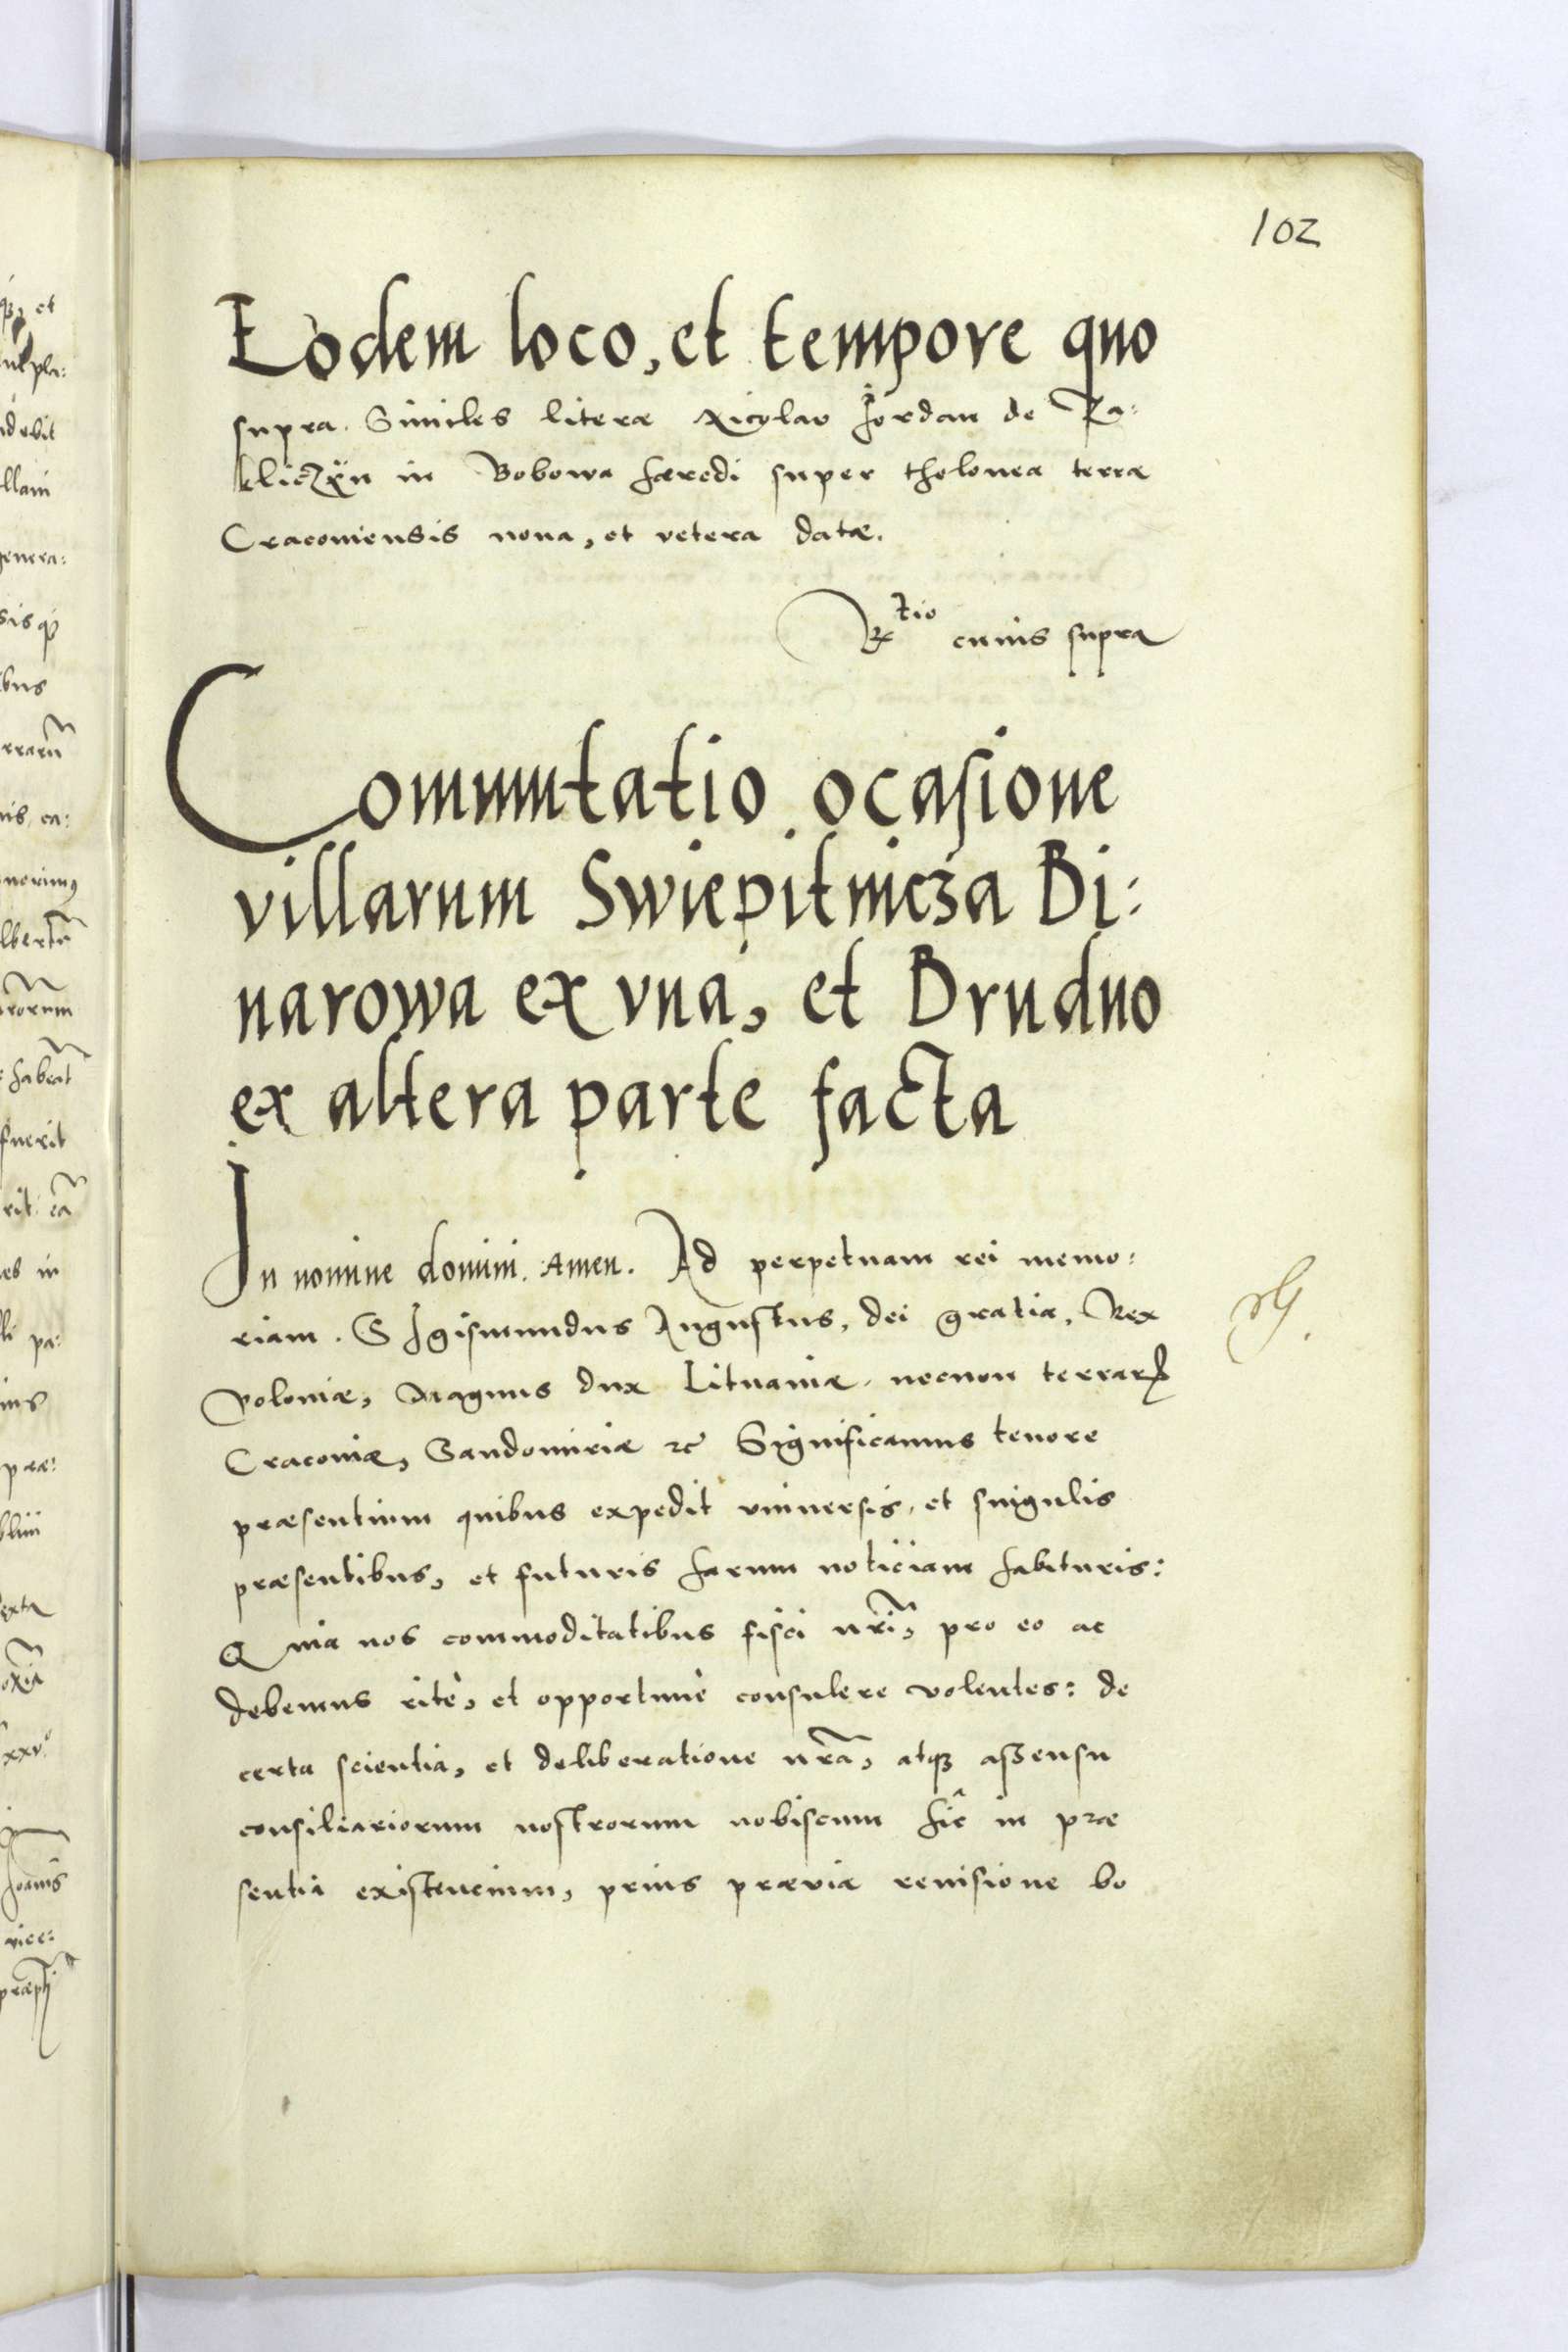 102
Eodem loco, et tempore quo
supra. Similes literæ Nicolao Jordan de Za:
kliczÿn in Bobowa hæredi super tholonea terræ
Cracouiensis noua, et vetera datæ.
Rtio cuius supra
Commutatio ocasione
villarum Swiepitnicza Bi:
narowa ex vna, et Brudno
ex altera parte facta
In nomine domini. Amen. Ad perpetuam rei memo:
riam. SIgismundus Augustus, dei gratia, Rex
Poloniæ, Magnus dux Lituaniæ, necnon terrarꝝ
Cracouiæ, Sandomiriæ ꝛc Significamus tenore
præsentium quibus expedit vniuersis, et singulis
præsentibus, et futuris harum noticiam habituris:
Quia nos commoditatibus fisci nr̃i, pro eo ac
debemus ritè, et opportunè consulere volentes: de
certa scientia, et deliberatione nr̃a, atqꝫ assensu
consiliariorum nostrorum nobiscum hîc in præ
sentia existencium, prius præuia reuisione bo